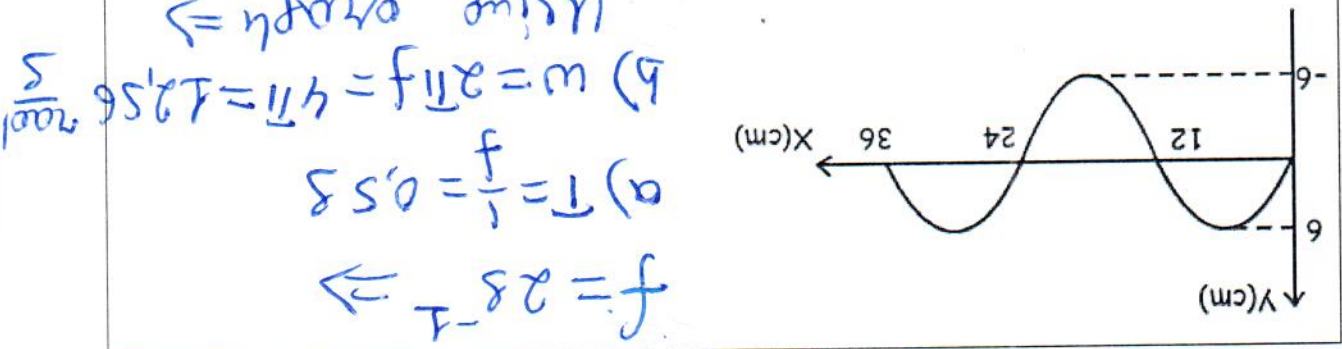 Y(cm)
6
12
24
36
X(cm)
-6
f = 2s⁻¹ ⇒
a) T = 1/f = 0,5s
b) w = 2πf = 4π = 12,56 rad/s
Using graph ⇒